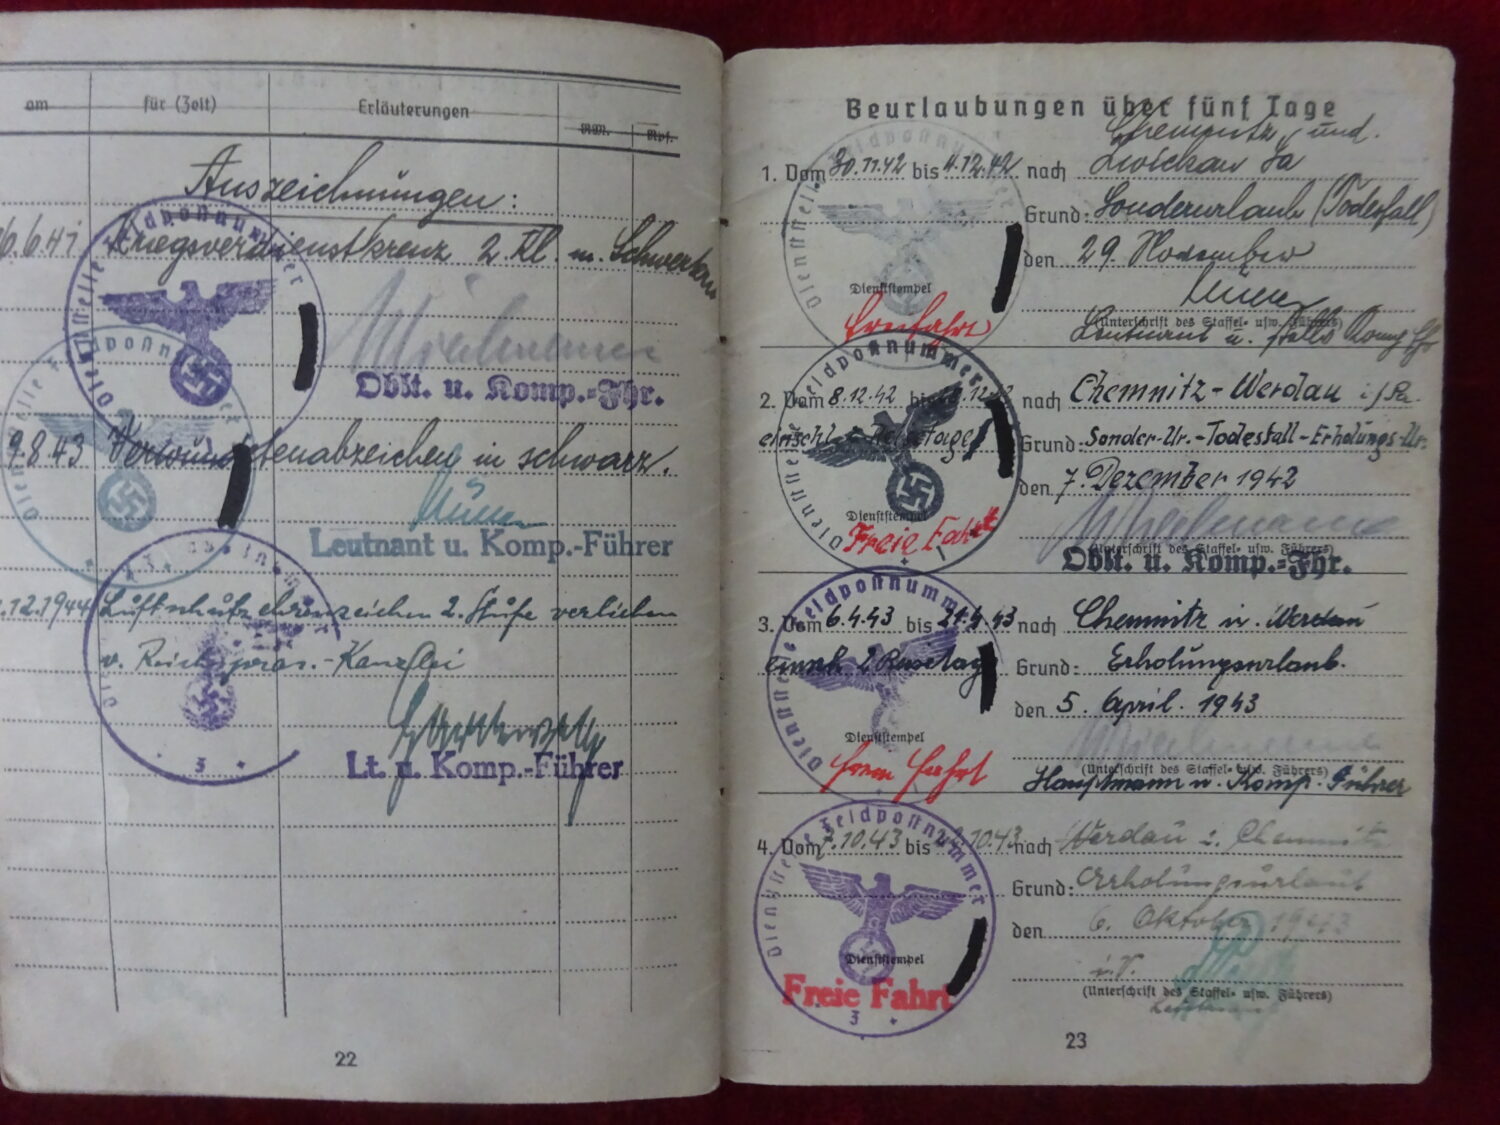 am für (Zeit) Erläuterungen RM. Rpf.
Auszeichnungen:
Kriegsverdienstkreuz 2. Kl. m. Schwertern
Feldpostnummer
Oblt. u. Komp.-Fhr.
9.8.43 Verwundetenabzeichen in schwarz.
Leutnant u. Komp.-Führer
12.1944 Luftschutzehrenzeichen 2. Stufe verliehen
v. Reichspräs.-Kanzlei
Lt. u. Komp.-Führer
3
22
Beurlaubungen über fünf Tage
Chemnitz und
1. Vom 30.11.42 bis 4.12.42 nach Zwickau Sa
Grund: Sonderurlaub (Todesfall)
den 29. November
Dienststempel
Freifahrt
(Unterschrift des Staffel- usw. Führers)
Leutnant u.
Dienststelle Feldpostnummer
2. Vom 8.12.42 bis 12.42 nach Chemnitz-Werdau i/Sa.
einschl. 2 Reisetage Grund: Sonder-Ur.-Todesfall-Erholungs-Ur.
den 7. Dezember 1942
Dienststempel
Freie Fahrt
(Unterschrift des Staffel- usw. Führers)
Oblt. u. Komp.-Fhr.
Dienststelle Feldpostnummer
3. Vom 6.4.43 bis 21.4.43 nach Chemnitz u. Werdau
einschl. 2 Reisetage Grund: Erholungsurlaub.
den 5. April. 1943
Dienststempel
Freie Fahrt
(Unterschrift des Staffel- usw. Führers)
Hauptmann u. Komp.-Führer
Dienststelle Feldpostnummer
4. Vom 10.43 bis 10.43 nach Werdau i. Chemnitz
Grund: Erholungsurlaub
den 6. Oktober 1943
i.V.
Dienststempel
Freie Fahrt
(Unterschrift des Staffel- usw. Führers)
Leutnant
3
23